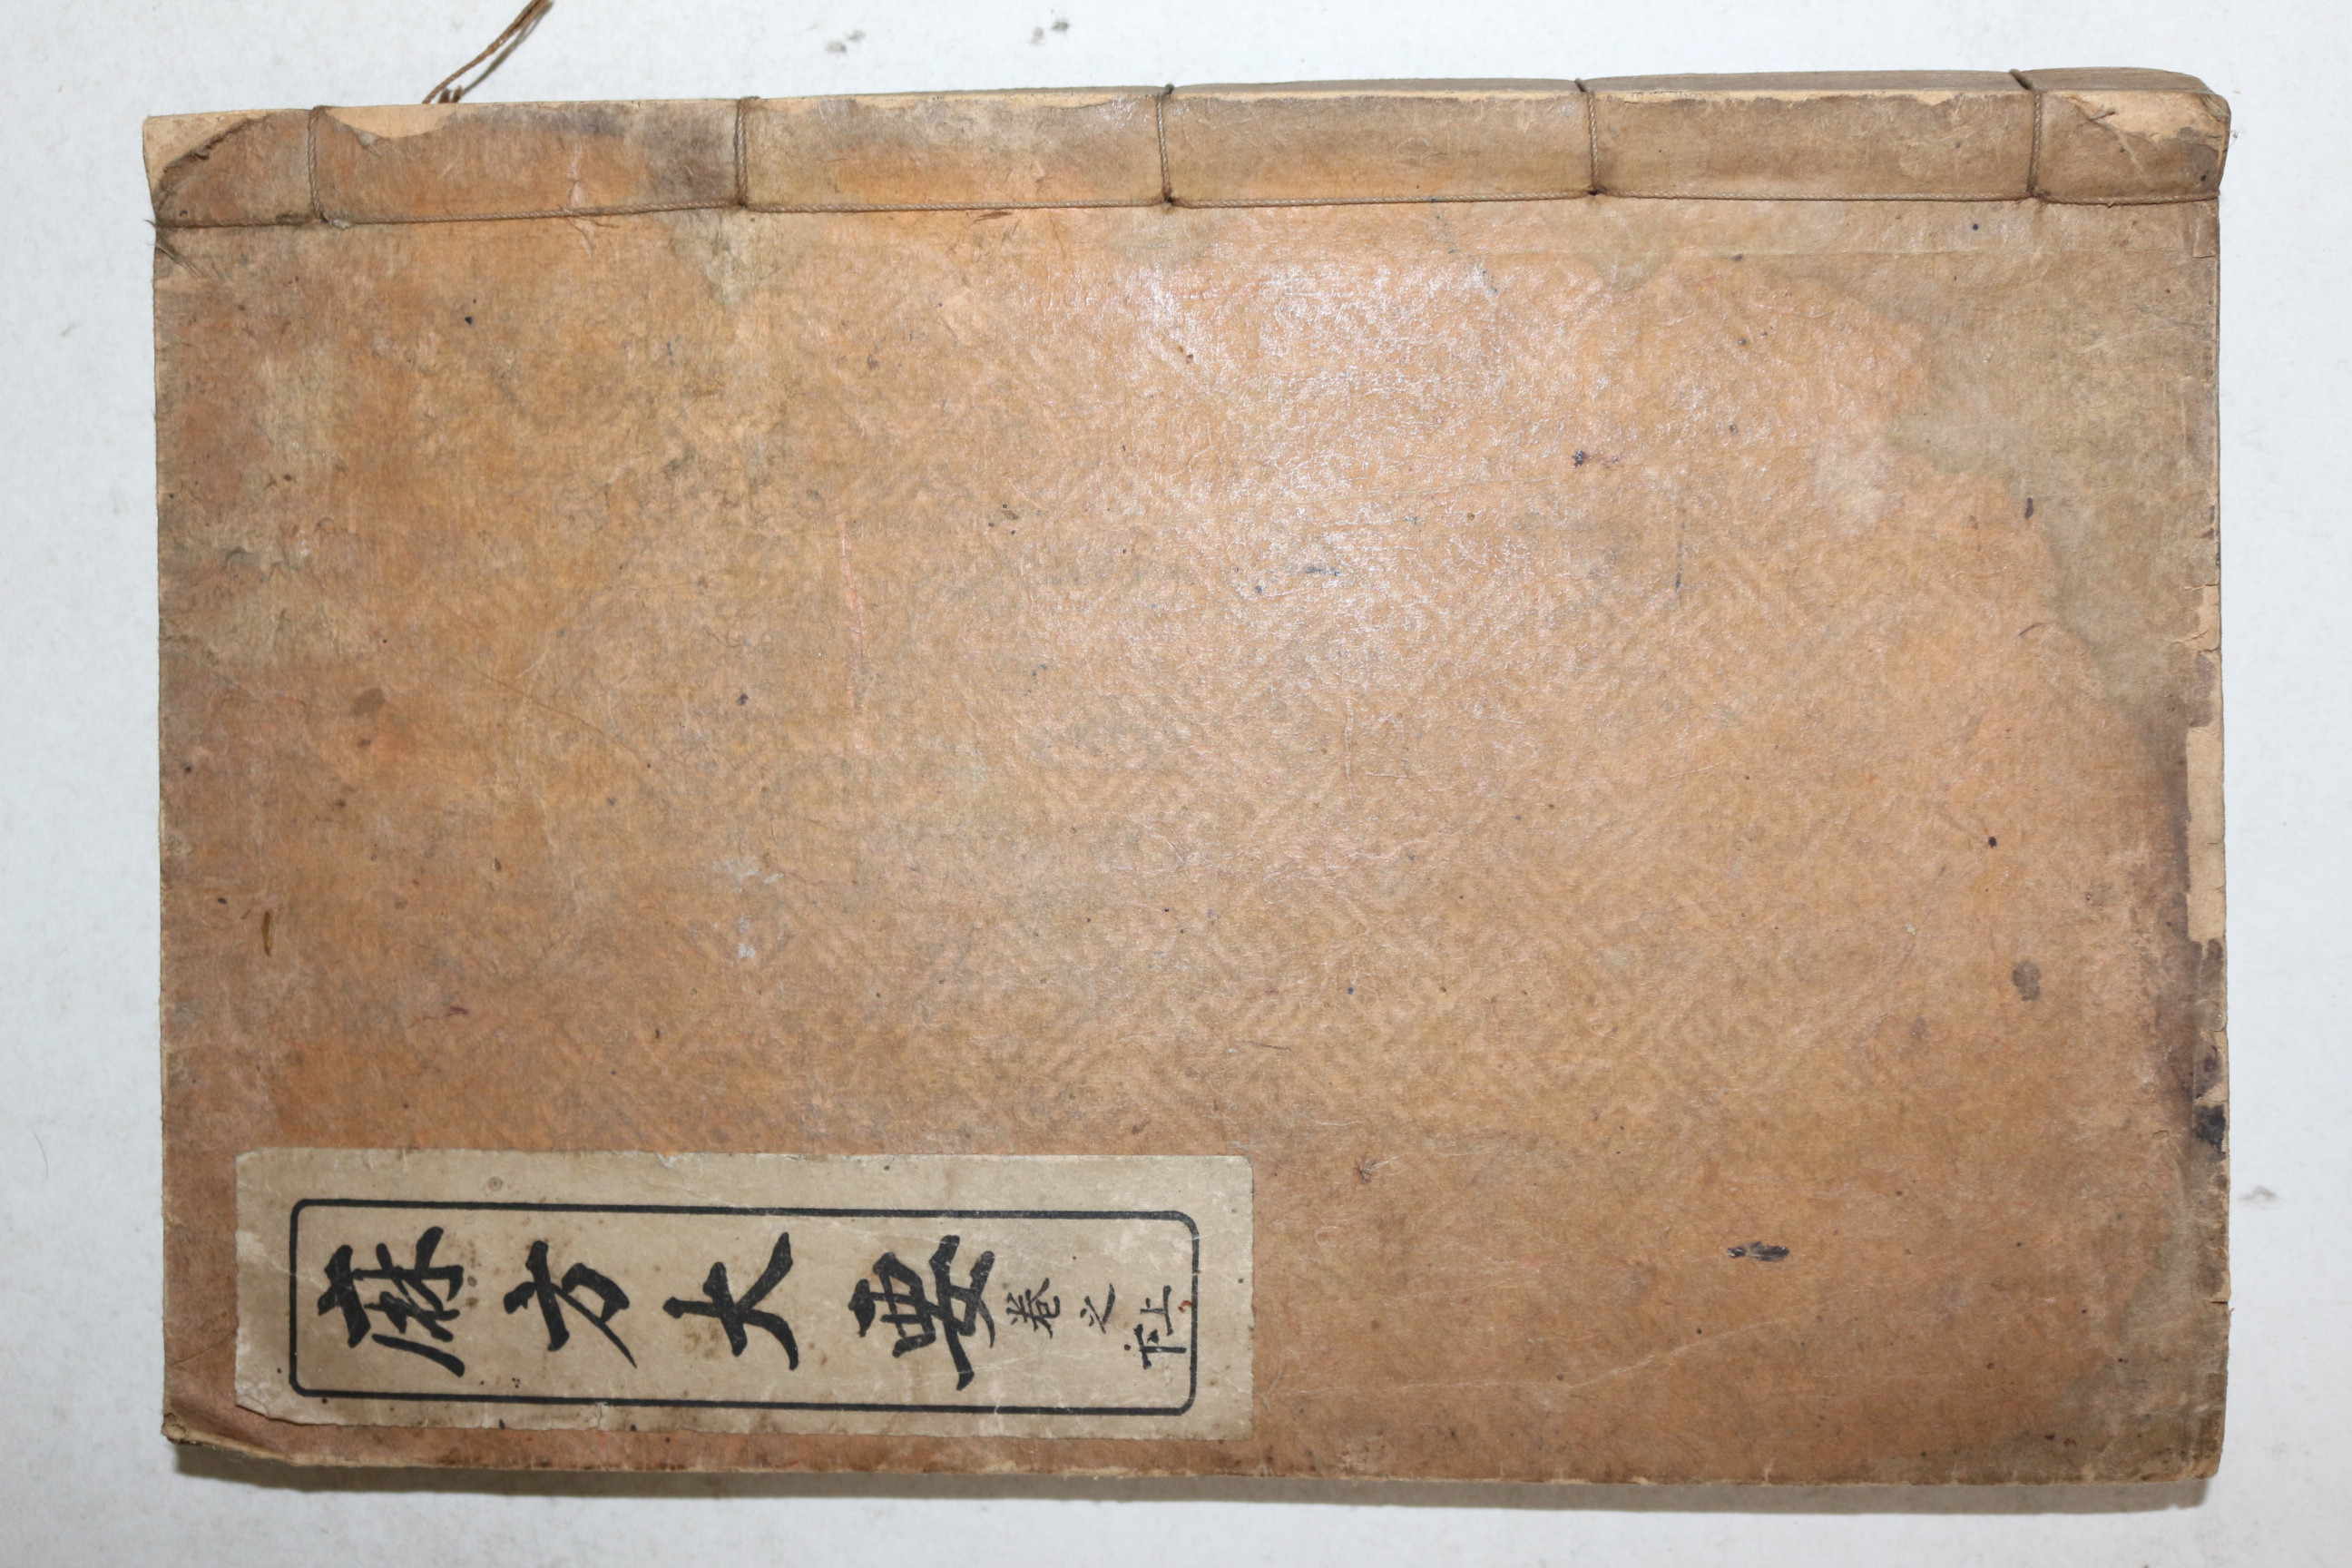 麻方大要 卷之上下